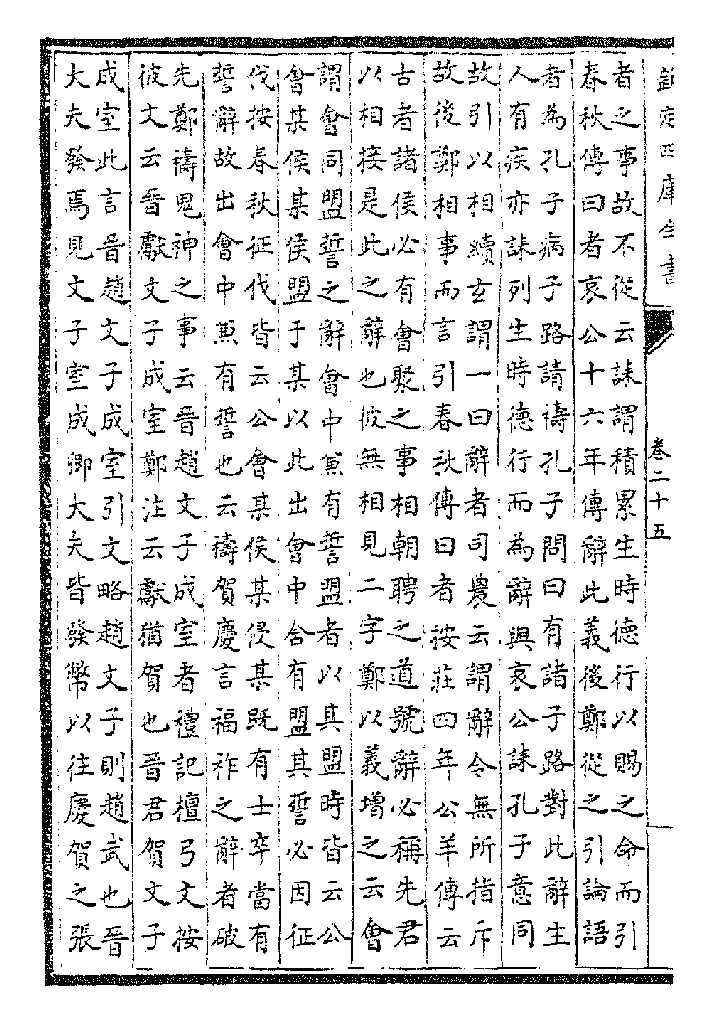 欽定四庫全書
卷二十五
者之事故不從云誄謂積累生時德行以賜之命而引
春秋傳曰者哀公十六年傳辭此義後鄭從之引論語
者為孔子病子路請禱孔子問曰有諸子路對此辭生
人有疾亦誄列生時德行而為辭與哀公誄孔子意同
故引以相續玄謂一曰辭者司農云謂辭令無所指斥
故後鄭相事而言引春秋傳曰者按莊四年公羊傳云
古者諸侯必有會聚之事相朝聘之道號辭必稱先君
以相接是此之辭也彼無相見二字鄭以義增之云會
謂會同盟誓之辭會中兼有誓盟者以其盟時皆云公
會某侯某侯盟于某以此出會中含有盟其誓必因征
伐按春秋征伐皆云公會某侯某侵某既有士卒當有
誓辭故出會中兼有誓也云禱賀慶言福祚之辭者破
先鄭禱鬼神之事云晉趙文子成室者禮記檀弓文按
彼文云晉獻文子成室鄭注云獻猶賀也晉君賀文子
成室此言晉趙文子成室引文略趙文子則趙武也晉
大夫發焉見文子室成卿大夫皆發幣以往慶賀之張